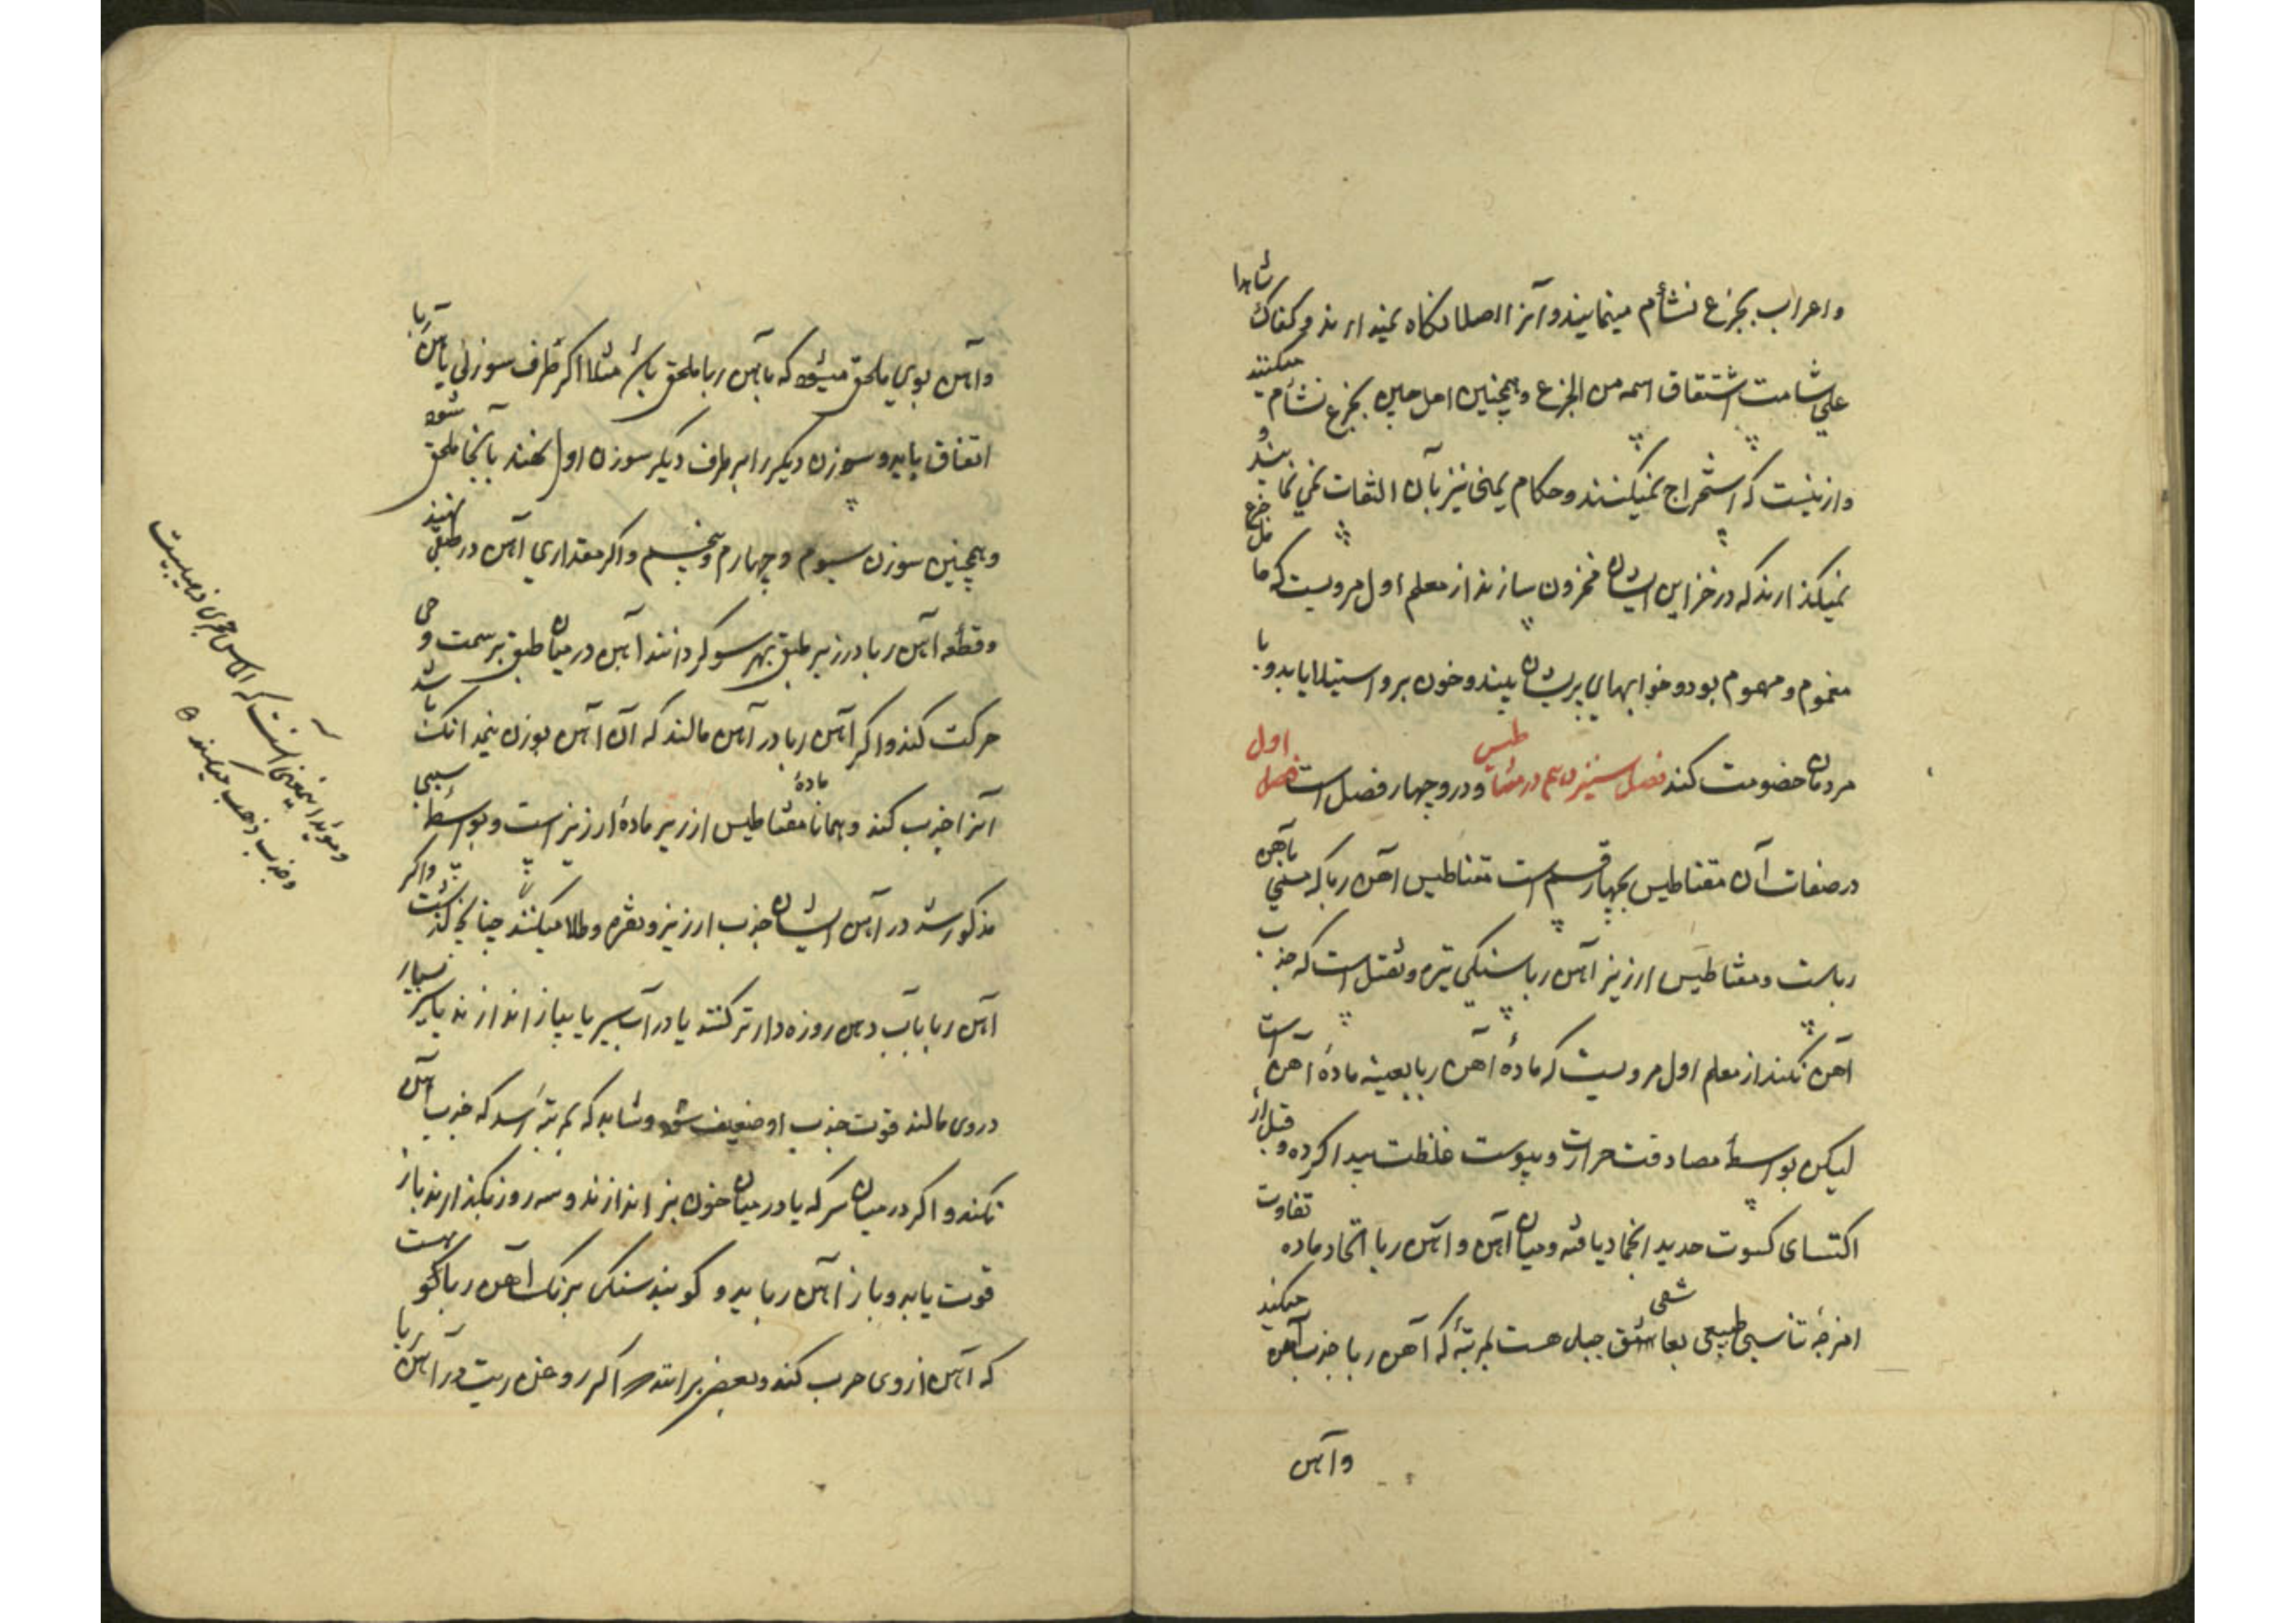 واعراب بجزع نشأم مینمایند و آنرا اصلا نگاه نمیدارند و کفاک شاهدا
علی شامت اشتقاق اسمه من الجزع و همچنین اهل چین بجزع نشأم میکنند
و ازینست که استخراج نمیکنند و حکام یمن نیز بآن التفات نمی نمایند و
نمیکذارند که در خزاین ایشان مخزون سازند از معلم اول مرویست که حامل جزع
مغموم و مهموم بود و خوابهای پریشان بیند و خون برو استیلا یابد و با
مردمان خصومت کند فصل سیزدهم در مقناطیس و درو چهار فصل است فصل اول
در صفات آن مقناطیس بچهار قسم است مقناطیس آهن ربا که مسمی بآهن
رباست و مقناطیس ارزیز آهن ربا سنکی تیره و ثقیل است که جذب
آهن کند از معلم اول مرویست که مادهٔ آهن ربا بعینه مادهٔ آهن است
لیکن بواسطهٔ مصادفت حرارت و یبوست غلظت پیدا کرده و قبل از
اکتسای کسوت حدید انجماد یافته و میان آهن و آهن ربا اتحاد ماده تفاوت
امزجه تناسبی طبیعی تعاشقی جبلی هست بمرتبهٔ که آهن ربا جذب آهن میکند
وآهن
وآهن بوی ملحق میشود که بآهن ربا ملحق باشد مثلا اکر طرف سوزنی بآهن ربا
اتفاق یابد و سوزن دیکر را بر طرف دیکر سوزن اول نهند بآنجا ملحق شود
و همچنین سوزن سیوم و چهارم و پنجم و اکر مقداری آهن در طبقی نهند
و قطعه آهن ربا در زیر طبق بهر سو کردانند آهن در میان طبق بر سمت وی
حرکت کند و اکر آهن ربا در آهن مالند که آن آهن بوزن پنجدانک باشد
آنرا جذب کند و همانا مادهٔ مقناطیس ارزیر مادهٔ ارزیز است و بواسطهٔ سببی
مذکور شد در آهن ایشان جذب ارزیز و نقره و طلا میکنند چنانچه کذشت و اکر
آهن ربا بآب دهن روزه دار تر کنند یا در آب سیر یا پیاز اندازند یا سیر بسیار
در وی مالند قوت جذب او ضعیف شود و شاید که بمرتبهٔ رسد که جذب آهن
نکند و اکر در میان سرکه یا در میان خون بز اندازند و سه روز بکذارند باز
قوت یابد و باز آهن رباید و کویند سنکی برنک آهن ربا کو هست
که آهن از وی هرب کند و بعضی برانند اکر روغن زیت در آهن ربا
و مؤید اینمعنی آنست که الماس حجری ذهبیست
و جذب ذهب میکند